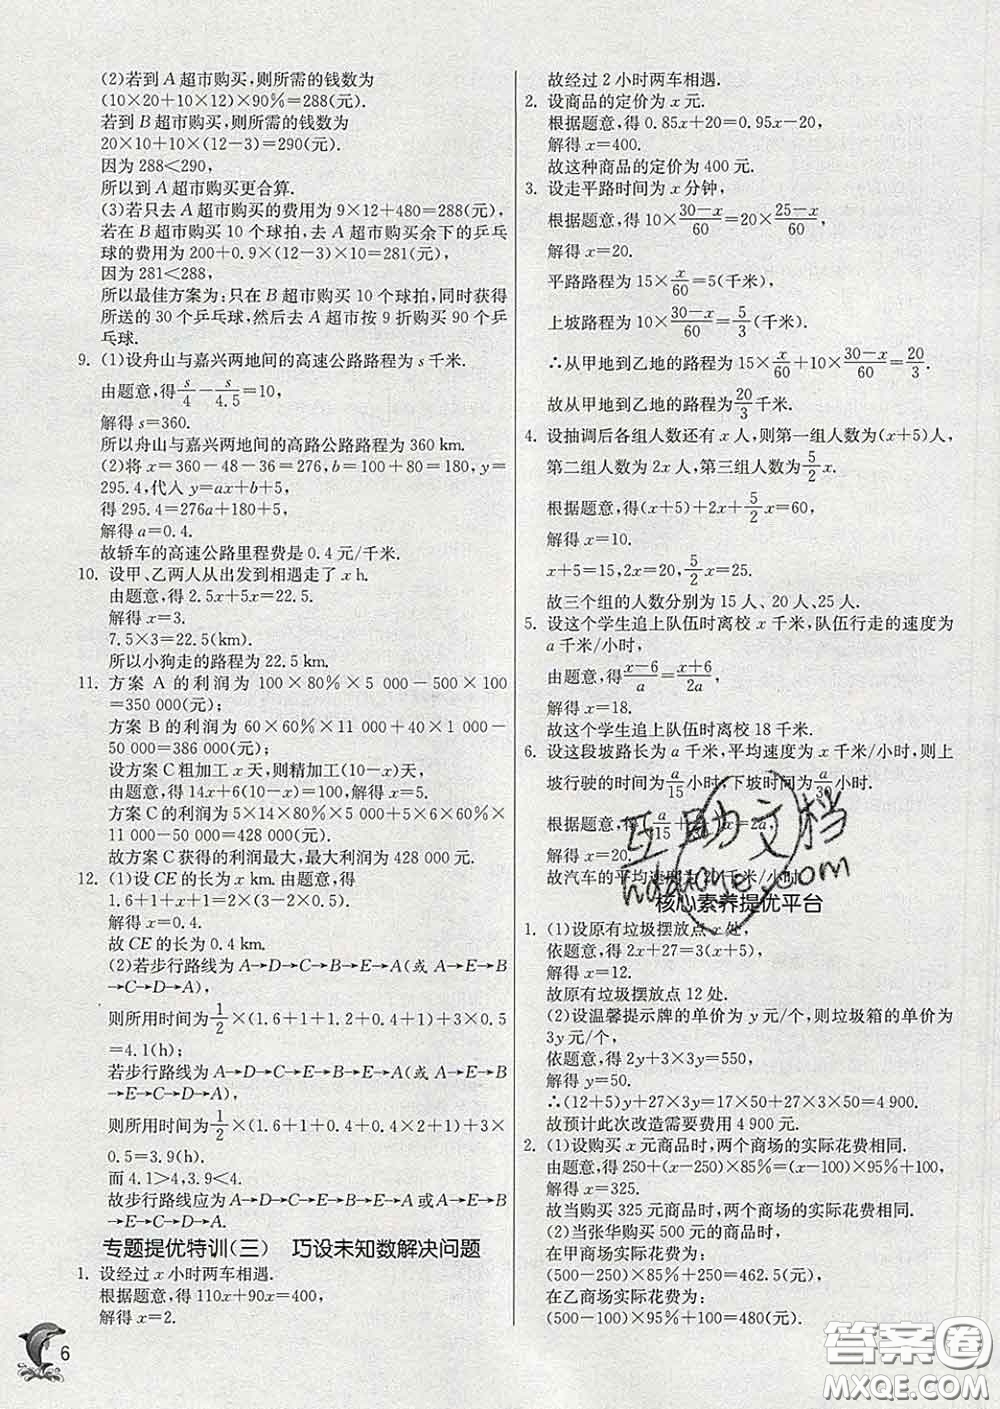 (2)若到 A 超市购买,则所需的钱数为
(10×20+10×12)×90%=288(元).
若到 B 超市购买,则所需的钱数为
20×10+10×(12-3)=290(元).
因为 288<290,
所以到 A 超市购买更合算.
(3)若只去 A 超市购买的费用为 9×12+480=288(元),
若在 B 超市购买 10 个球拍,去 A 超市购买余下的乒乓
球的费用为 200+0.9×(12-3)×10=281(元),
因为 281<288,
所以最佳方案为:只在 B 超市购买 10 个球拍,同时获得
所送的 30 个乒乓球,然后去 A 超市按 9 折购买 90 个乒
乓球.
9. (1)设舟山与嘉兴两地间的高速公路路程为 s 千米.
由题意,得 s/4 - s/4.5 =10,
解得 s=360.
所以舟山与嘉兴两地间的高路公路路程为 360 km.
(2)将 x=360-48-36=276,b=100+80=180,y=
295.4,代入 y=ax+b+5,
得 295.4=276a+180+5,
解得 a=0.4.
故轿车的高速公路里程费是 0.4 元/千米.
10. 设甲、乙两人从出发到相遇走了 x h.
由题意,得 2.5x+5x=22.5.
解得 x=3.
7.5×3=22.5(km).
所以小狗走的路程为 22.5 km.
11. 方案 A 的利润为 100×80%×5 000-500×100
=350 000(元);
方案 B 的利润为 60×60%×11 000+40×1 000-
50 000=386 000(元);
设方案 C 粗加工 x 天,则精加工(10-x)天,
由题意,得 14x+6(10-x)=100,解得 x=5.
方案 C 的利润为 5×14×80%×5 000+5×6×60%
×11 000-50 000=428 000(元).
故方案 C 获得的利润最大,最大利润为 428 000 元.
12. (1)设 CE 的长为 x km. 由题意,得
1.6+1+x+1=2×(3-2×0.5),
解得 x=0.4.
故 CE 的长为 0.4 km.
(2)若步行路线为 A→D→C→B→E→A(或 A→E→B
→C→D→A),
则所用时间为 1/2 ×(1.6+1+1.2+0.4+1)+3×0.5
=4.1(h);
若步行路线为 A→D→C→E→B→E→A(或 A→E→
B→E→C→D→A),
则所用时间为 1/2 ×(1.6+1+0.4+0.4×2+1)+3×
0.5=3.9(h).
而 4.1>3.9,3.9<4.
故步行路线应为 A→D→C→E→B→E→A 或 A→E→
B→E→C→D→A.
专题提优特训(三) 巧设未知数解决问题
1. 设经过 x 小时两车相遇.
根据题意,得 110x+90x=400,
解得 x=2.
6
故经过 2 小时两车相遇.
2. 设商品的定价为 x 元.
根据题意,得 0.85x+20=0.95x-20,
解得 x=400.
故这种商品的定价为 400 元.
3. 设走平路时间为 x 分钟,
根据题意,得 10× (30-x)/60 =20× (25-x)/60 ,
解得 x=20.
平路路程为 15× x/60 =5(千米),
上坡路程为 10× (30-x)/60 = 5/3 (千米).
∴从甲地到乙地的路程为 15× x/60 +10× (30-x)/60 = 20/3 .
故从甲地到乙地的路程为 20/3 千米.
4. 设抽调后各组人数还有 x 人,则第一组人数为(x+5)人,
第二组人数为 2x 人,第三组人数为 5/2 x.
根据题意,得(x+5)+2x+ 5/2 x=60,
解得 x=10.
x+5=15,2x=20, 5/2 x=25.
故三个组的人数分别为 15 人、20 人、25 人.
5. 设这个学生追上队伍时离校 x 千米,队伍行走的速度为
a 千米/小时,
由题意,得 (x-6)/a = (x+6)/2a ,
解得 x=18.
故这个学生追上队伍时离校 18 千米.
6. 设这段坡路长为 a 千米,平均速度为 x 千米/小时,则上
坡行驶的时间为 a/15 小时,下坡时间为 a/30 小时.
根据题意,得( a/15 + x=2a,
解得 x=20.
故汽车的平均速度为 20 千米/小时.
核心素养提优平台
1. (1)设原有垃圾摆放点 x 处,
依题意,得 2x+27=3(x+5),
解得 x=12.
故原有垃圾摆放点 12 处.
(2)设温馨提示牌的单价为 y 元/个,则垃圾箱的单价为
3y 元/个,
依题意,得 2y+3×3y=550,
解得 y=50.
∴(12+5)y+27×3y=17×50+27×3×50=4 900.
故预计此次改造需要费用 4 900 元.
2. (1)设购买 x 元商品时,两个商场的实际花费相同.
由题意,得 250+(x-250)×85%=(x-100)×95%+100,
解得 x=325.
故当购买 325 元商品时,两个商场的实际花费相同.
(2)当张华购买 500 元的商品时,
在甲商场实际花费为:
(500-250)×85%+250=462.5(元),
在乙商场实际花费为:
(500-100)×95%+100=480(元).
互助文档
hdanie.com
答案圈
MXQE.COM